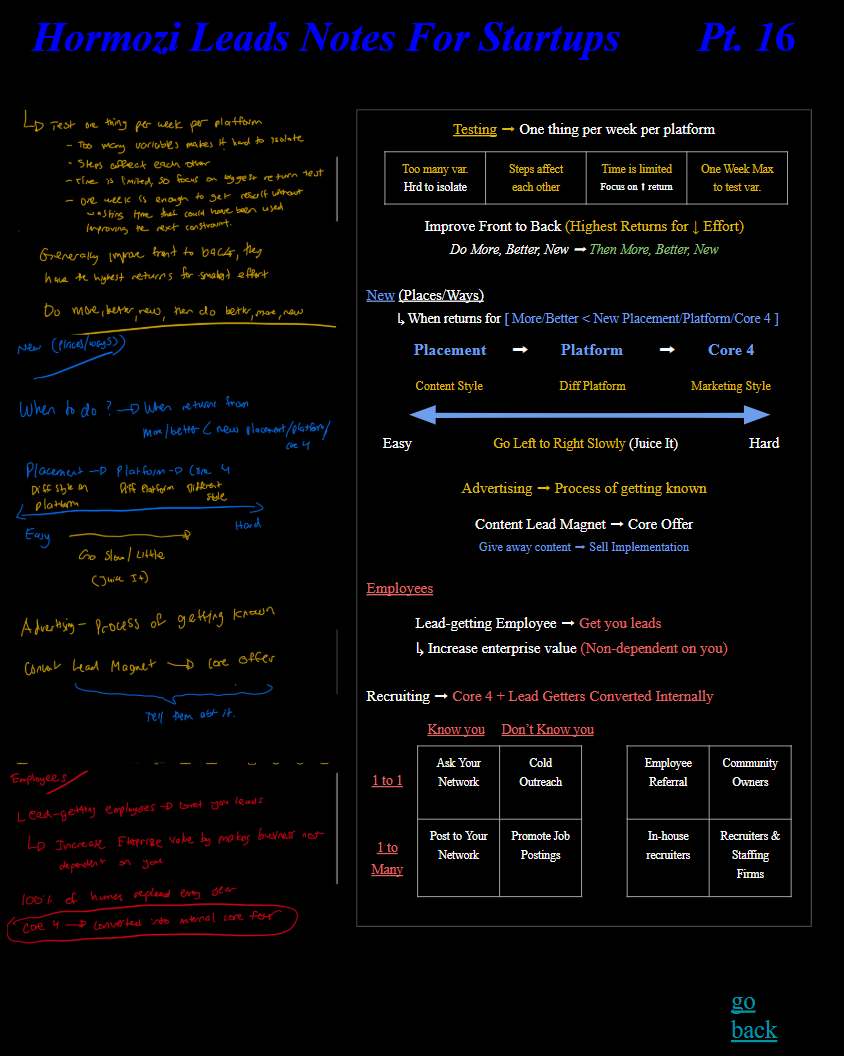 Hormozi Leads Notes For Startups Pt. 16
↳ Test one thing per week per platform
- Too many variables makes it hard to isolate
- Steps affect each other
- Time is limited, so focus on biggest return test
- one week is enough to get result without
wasting time that could have been used
improving the next constraint.
Generally improve front to back, they
have the highest returns for smallest effort
Do more, better, new, then do better, more, new
New (Places/ways)
When to do? → When returns from
more/better < new placement/platform/
core 4
Placement → Platform → Core 4
Diff style on Diff Platform Different
platform style
Easy Hard
Go Slow/Little
(Juice It)
Advertising - Process of getting known
Content Lead Magnet → Core offer
Tell them abt it.
Employees
Lead-getting employees → Get you leads
↳ Increase Eterprise value by makes business not
dependent on you
100% of humans replaced every year
Core 4 → converted into internal core four
Testing → One thing per week per platform
Too many var. Steps affect Time is limited One Week Max
Hrd to isolate each other Focus on ↑ return to test var.
Improve Front to Back (Highest Returns for ↓ Effort)
Do More, Better, New → Then More, Better, New
New (Places/Ways)
↳ When returns for [ More/Better < New Placement/Platform/Core 4 ]
Placement → Platform → Core 4
Content Style Diff Platform Marketing Style
Easy Go Left to Right Slowly (Juice It) Hard
Advertising → Process of getting known
Content Lead Magnet → Core Offer
Give away content → Sell Implementation
Employees
Lead-getting Employee → Get you leads
↳ Increase enterprise value (Non-dependent on you)
Recruiting → Core 4 + Lead Getters Converted Internally
Know you Don't Know you
1 to 1
Ask Your Cold Employee Community
Network Outreach Referral Owners
1 to
Many
Post to Your Promote Job In-house Recruiters &
Network Postings recruiters Staffing
Firms
go
back